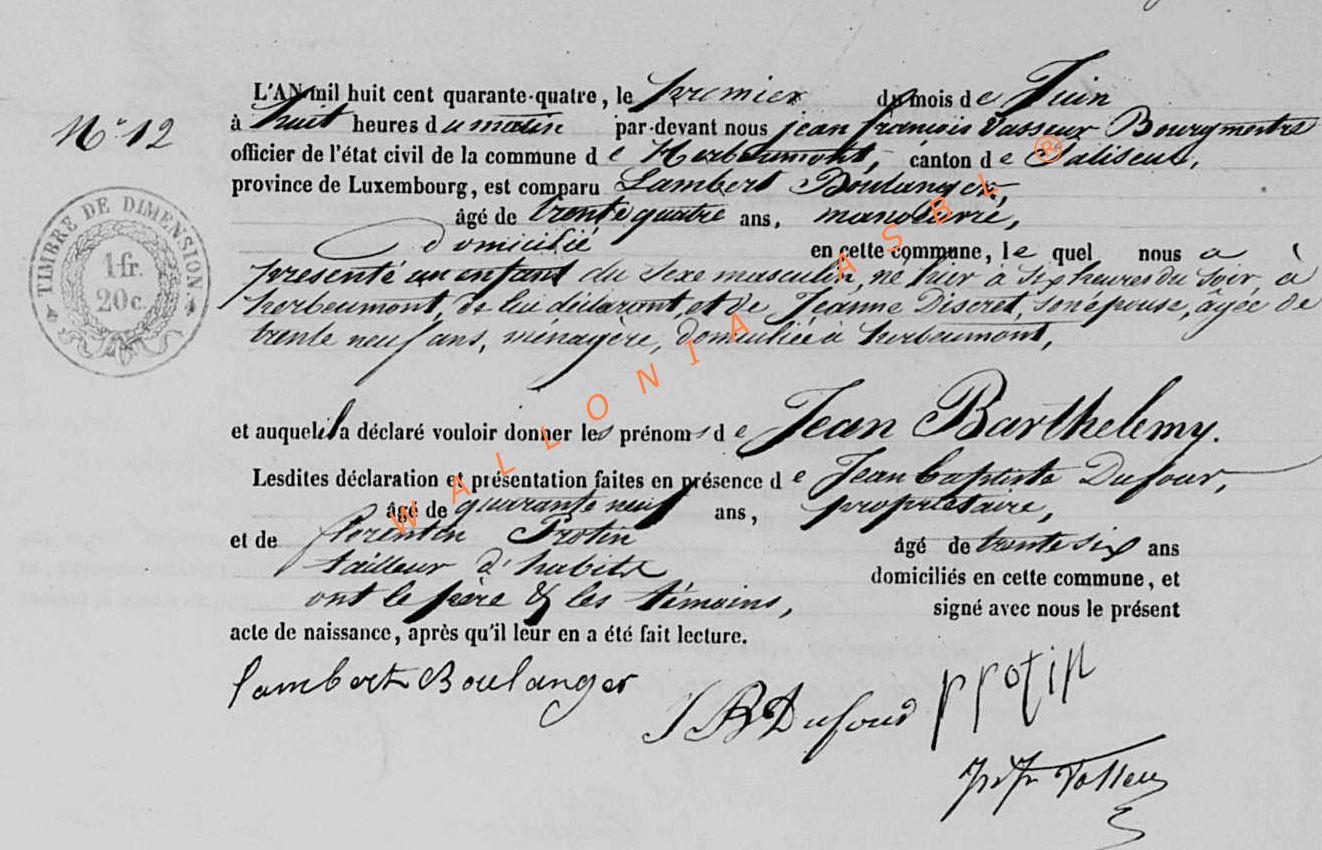 L'AN mil huit cent quarante-quatre, le premier du mois de Juin
N° 12
à huit heures du matin par-devant nous jean francois Vasseur Bourgmestre
officier de l'état civil de la commune de Herbeumont, canton de Paliseul,
province de Luxembourg, est comparu Lambert Boulanger,
âgé de trente quatre ans, manoeuvre,
domicilié en cette commune, lequel nous a
presenté un enfant du sexe masculin, né hier à six heures du soir, à
herbeumont, de lui déclarant, et de Jeanne Discret, son épouse, âgée de
trente neuf ans, ménagère, domiciliée à herbeumont,
et auquel il a déclaré vouloir donner les prénoms de Jean Barthelemy.
Lesdites déclaration et présentation faites en présence de Jean baptiste Dufour,
âgé de quarante neuf ans, propriétaire,
et de florentin Protin âgé de trente six ans
tailleur d'habits domiciliés en cette commune, et
ont le père & les témoins, signé avec nous le présent
acte de naissance, après qu'il leur en a été fait lecture.
lambert Boulanger
J B Dufour
protin
TIMBRE DE DIMENSION
1 fr.
20 c.
WALLONIA ASBL ®